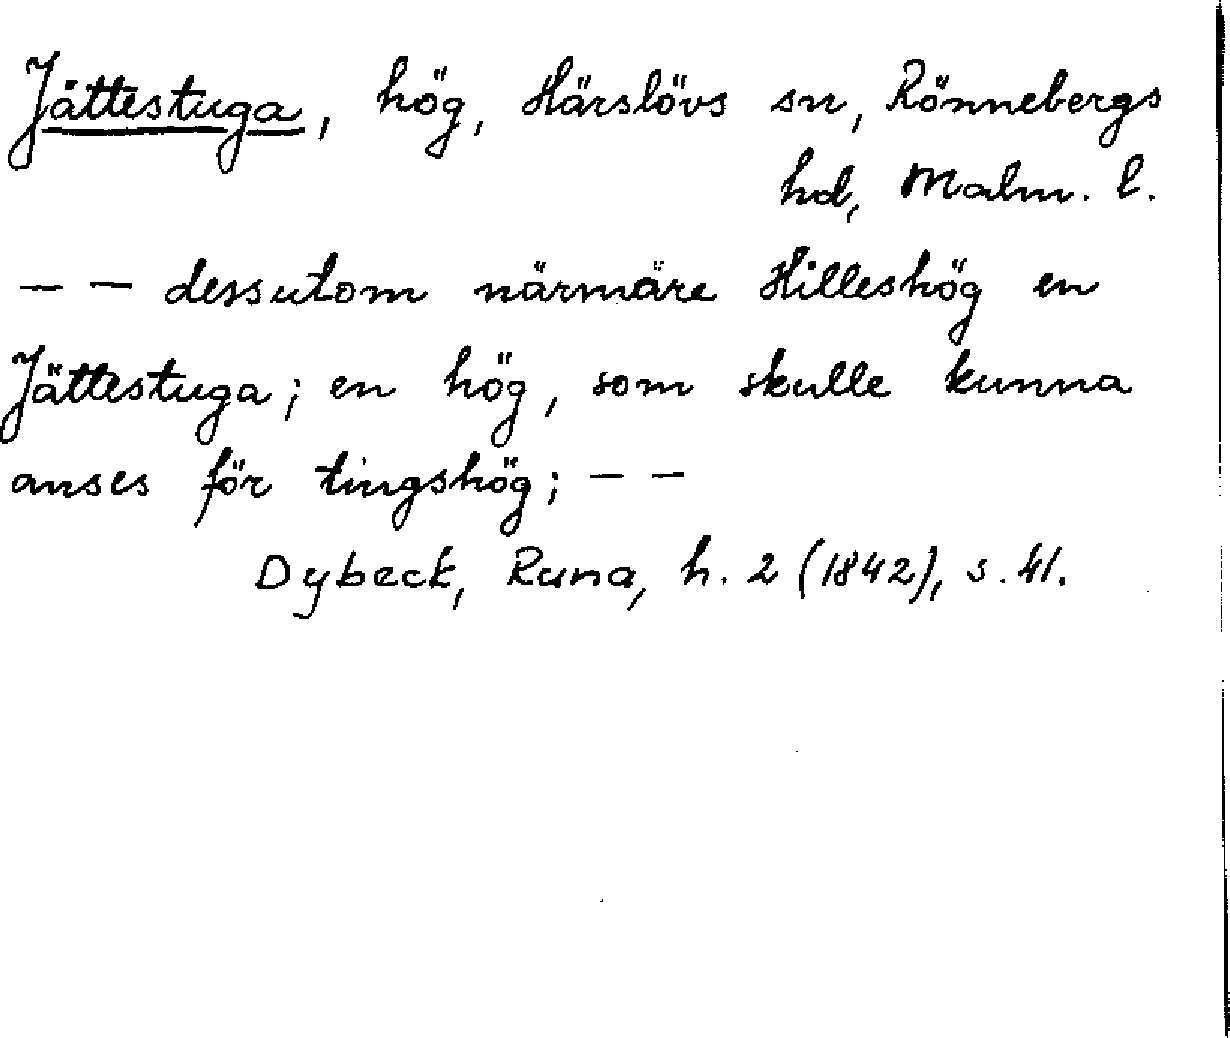 Jättestuga, hög, Härslövs sn, Rönnebergs
hd, Malm. l.
— — dessutom närmäre Hilleshög en
Jättestuga; en hög, som skulle kunna
anses för tingshög; — —
Dybeck, Runa, h. 2 (1842), s. 41.